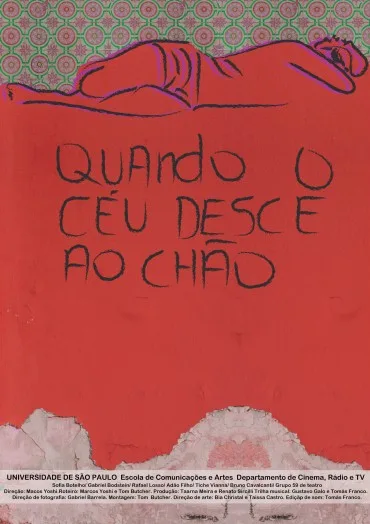 QUANDO O
CÉU DESCE
AO CHÃO
UNIVERSIDADE DE SÃO PAULO Escola de Comunicações e Artes Departamento de Cinema, Rádio e TV
Sofia Botelho/ Gabriel Bodstein/ Rafael Lozso/ Adão Filho/ Tiche Vianna/ Bruno Cavalcanti/ Grupo 59 de teatro
Direção: Marcos Yoshi Roteiro: Marcos Yoshi e Tom Butcher. Produção: Tsarna Meira e Renata Sircilli Trilha musical: Gustavo Galo e Tomás Franco.
Direção de fotografia: Gabriel Barrela. Montagem: Tom Butcher. Direção de arte: Bia Christal e Taissa Castro. Edição de som: Tomás Franco.